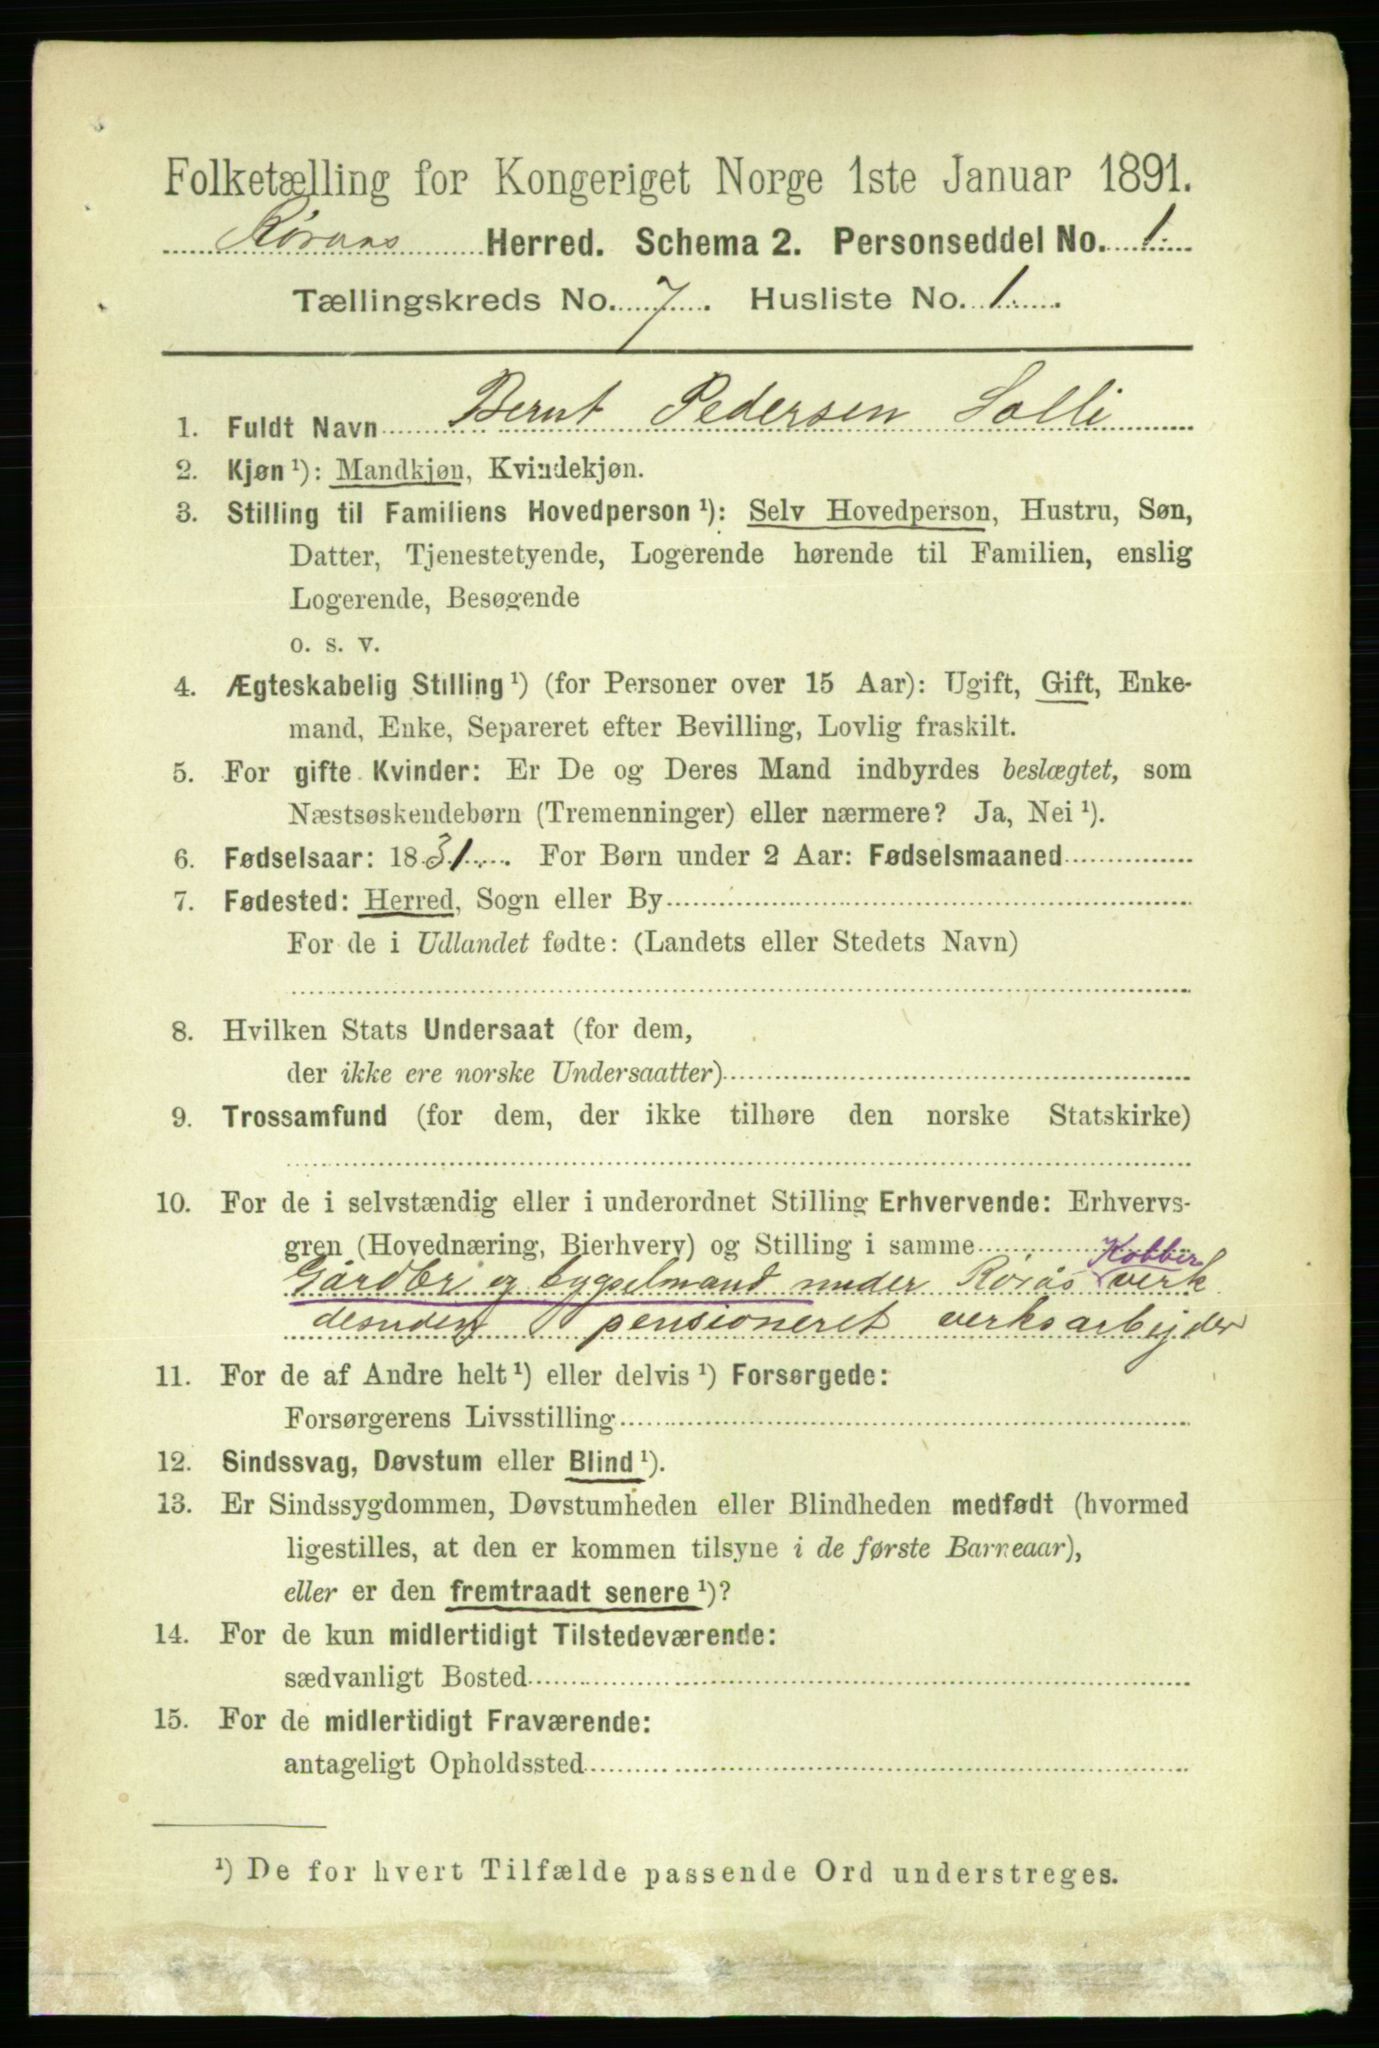 Folketælling for Kongeriget Norge 1ste Januar 1891.
Røraas Herred. Schema 2. Personseddel No. 1
Tællingskreds No. 7. Husliste No. 1
1. Fuldt Navn Bernt Pedersen Solli
2. Kjøn ¹): Mandkjøn, Kvindekjøn.
3. Stilling til Familiens Hovedperson ¹): Selv Hovedperson, Hustru, Søn,
Datter, Tjenestetyende, Logerende hørende til Familien, enslig
Logerende, Besøgende
o. s. v.
4. Ægteskabelig Stilling ¹) (for Personer over 15 Aar): Ugift, Gift, Enke-
mand, Enke, Separeret efter Bevilling, Lovlig fraskilt.
5. For gifte Kvinder: Er De og Deres Mand indbyrdes beslægtet, som
Næstsøskendebørn (Tremenninger) eller nærmere? Ja, Nei ¹).
6. Fødselsaar: 1831. For Børn under 2 Aar: Fødselsmaaned
7. Fødested: Herred, Sogn eller By
For de i Udlandet fødte: (Landets eller Stedets Navn)
8. Hvilken Stats Undersaat (for dem,
der ikke ere norske Undersaatter)
9. Trossamfund (for dem, der ikke tilhøre den norske Statskirke)
10. For de i selvstændig eller i underordnet Stilling Erhvervende: Erhvervs-
gren (Hovednæring, Bierhverv) og Stilling i samme
Kobber
Gårdbr og bygselmand under Rørås verk
desuden pensioneret verksarbejder
11. For de af Andre helt ¹) eller delvis ¹) Forsørgede:
Forsørgerens Livsstilling
12. Sindssvag, Døvstum eller Blind ¹).
13. Er Sindssygdommen, Døvstumheden eller Blindheden medfødt (hvormed
ligestilles, at den er kommen tilsyne i de første Barneaar),
eller er den fremtraadt senere ¹)?
14. For de kun midlertidigt Tilstedeværende:
sædvanligt Bosted
15. For de midlertidigt Fraværende:
antageligt Opholdssted
¹) De for hvert Tilfælde passende Ord understreges.